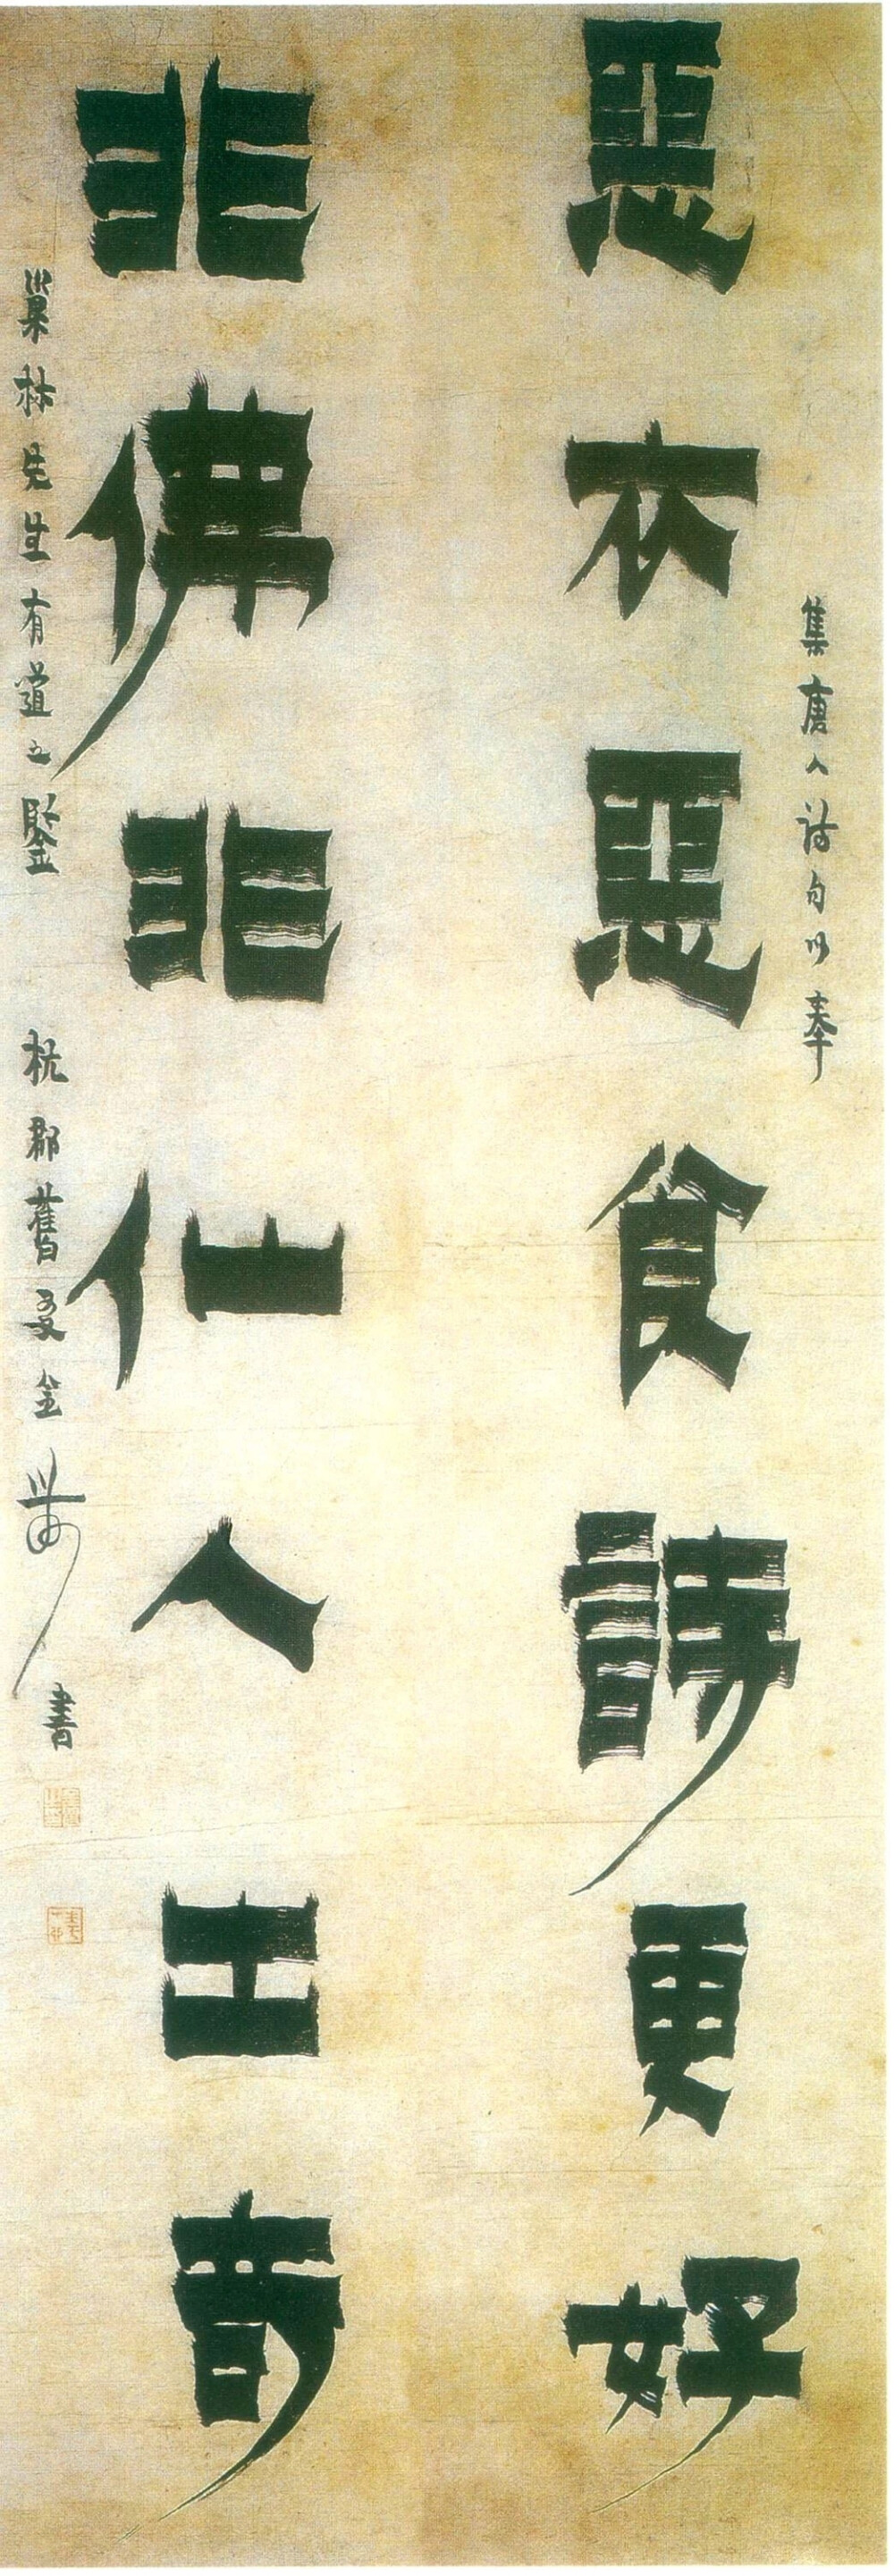 集唐人詩句以奉
惡衣惡食詩更好
非佛非仙人出奇
巢林先生有道之鑒　杭郡舊友金農書